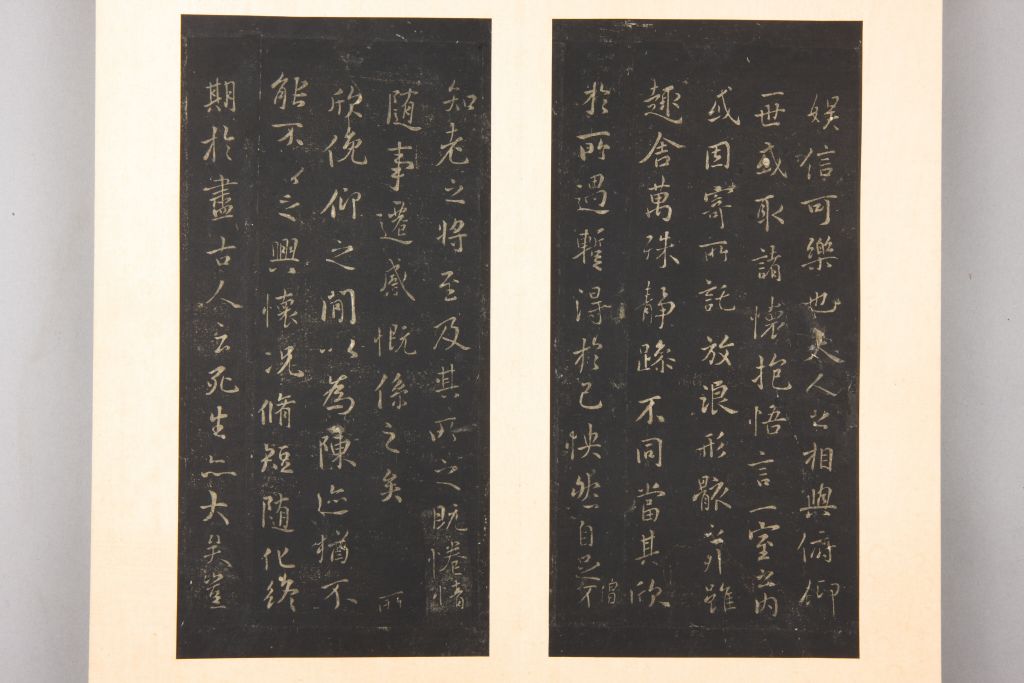 娛信可樂也夫人之相與俯仰
一世或取諸懷抱悟言一室之內
或因寄所託放浪形骸之外雖
趣舍萬殊靜躁不同當其欣
於所遇暫得於己怏然自足不
僧
知老之將至及其所之既惓情
隨事遷感慨係之矣 所
欣俛仰之閒以為陳迹猶不
能不以之興懷況脩短隨化終
期於盡古人云死生亦大矣豈